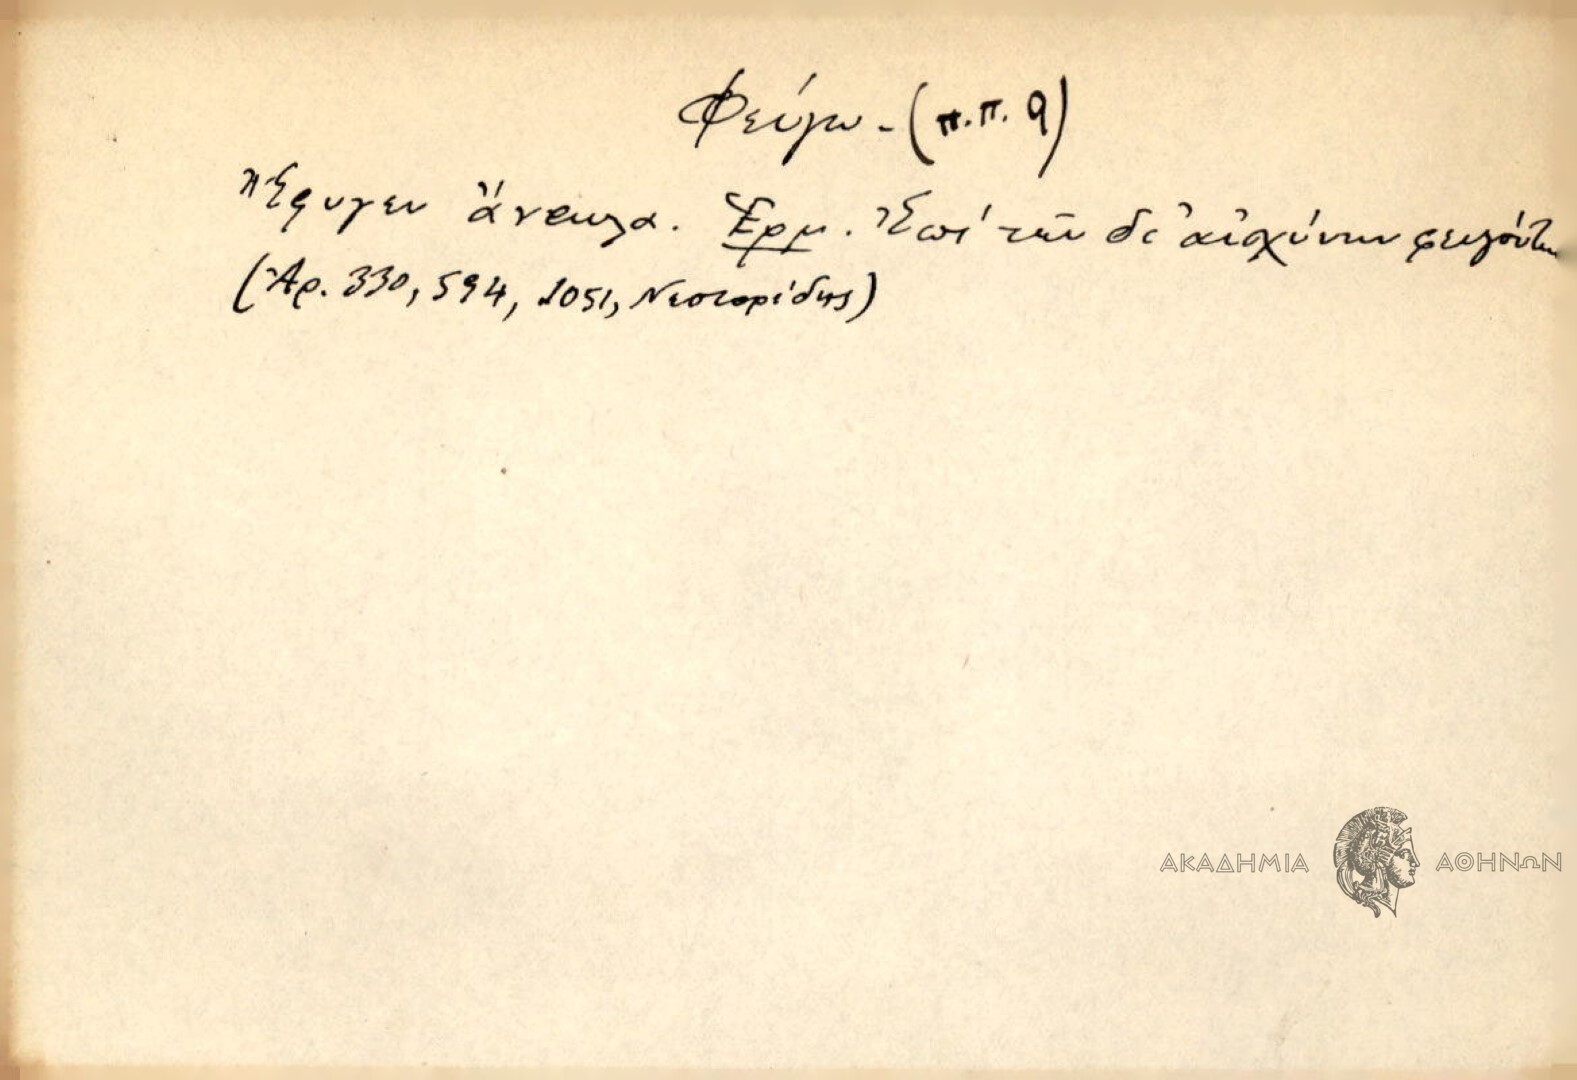 Φεύγω - (π.π. 9)
Ἔφυγεν ἄνευλα. Ἑρμ. Ἐπί τῶν δι' αἰσχύνην φευγόντων
(Ἀρ. 330, 594, 1051, Νεστορίδης)
ΑΚΑΔΗΜΙΑ ΑΘΗΝΩΝ